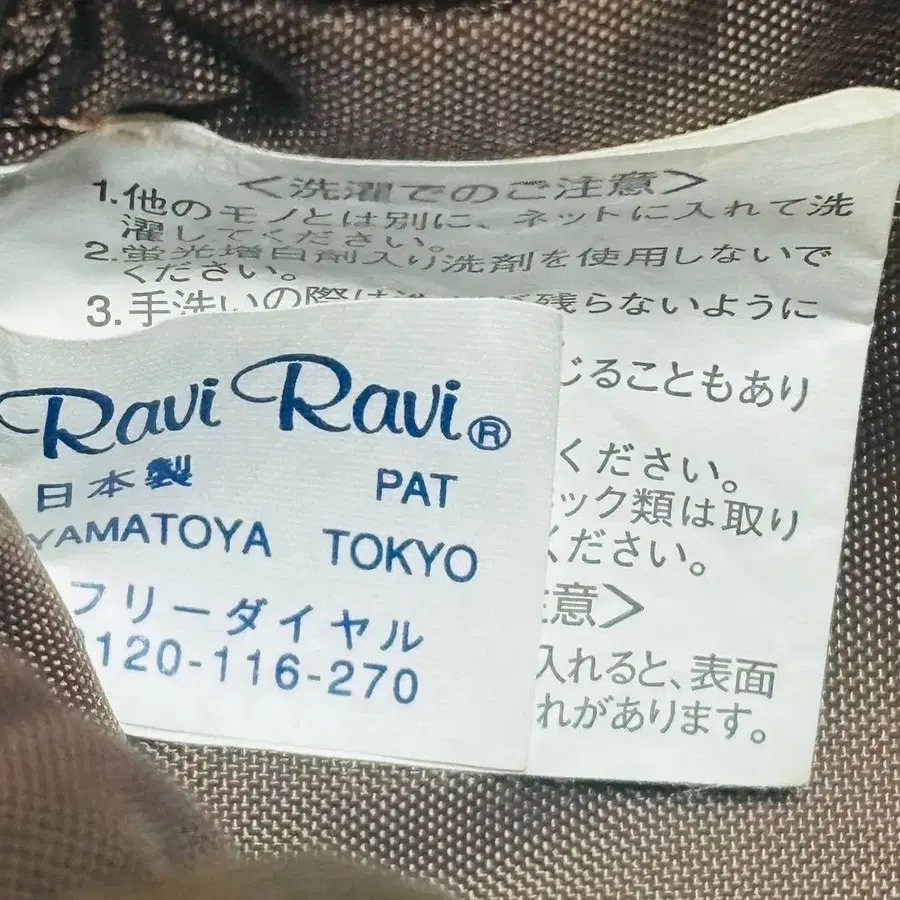 <洗濯でのご注意>
1.他のモノとは別に、ネットに入れて洗
濯してください。
2.蛍光増白剤入り洗剤を使用しないで
ください。
3.手洗いの際は 残らないように
じることもあり
ください。
ック類は取り
ください。
意>
入れると、表面
れがあります。
Ravi Ravi®
日本製 PAT
YAMATOYA TOKYO
フリーダイヤル
120-116-270